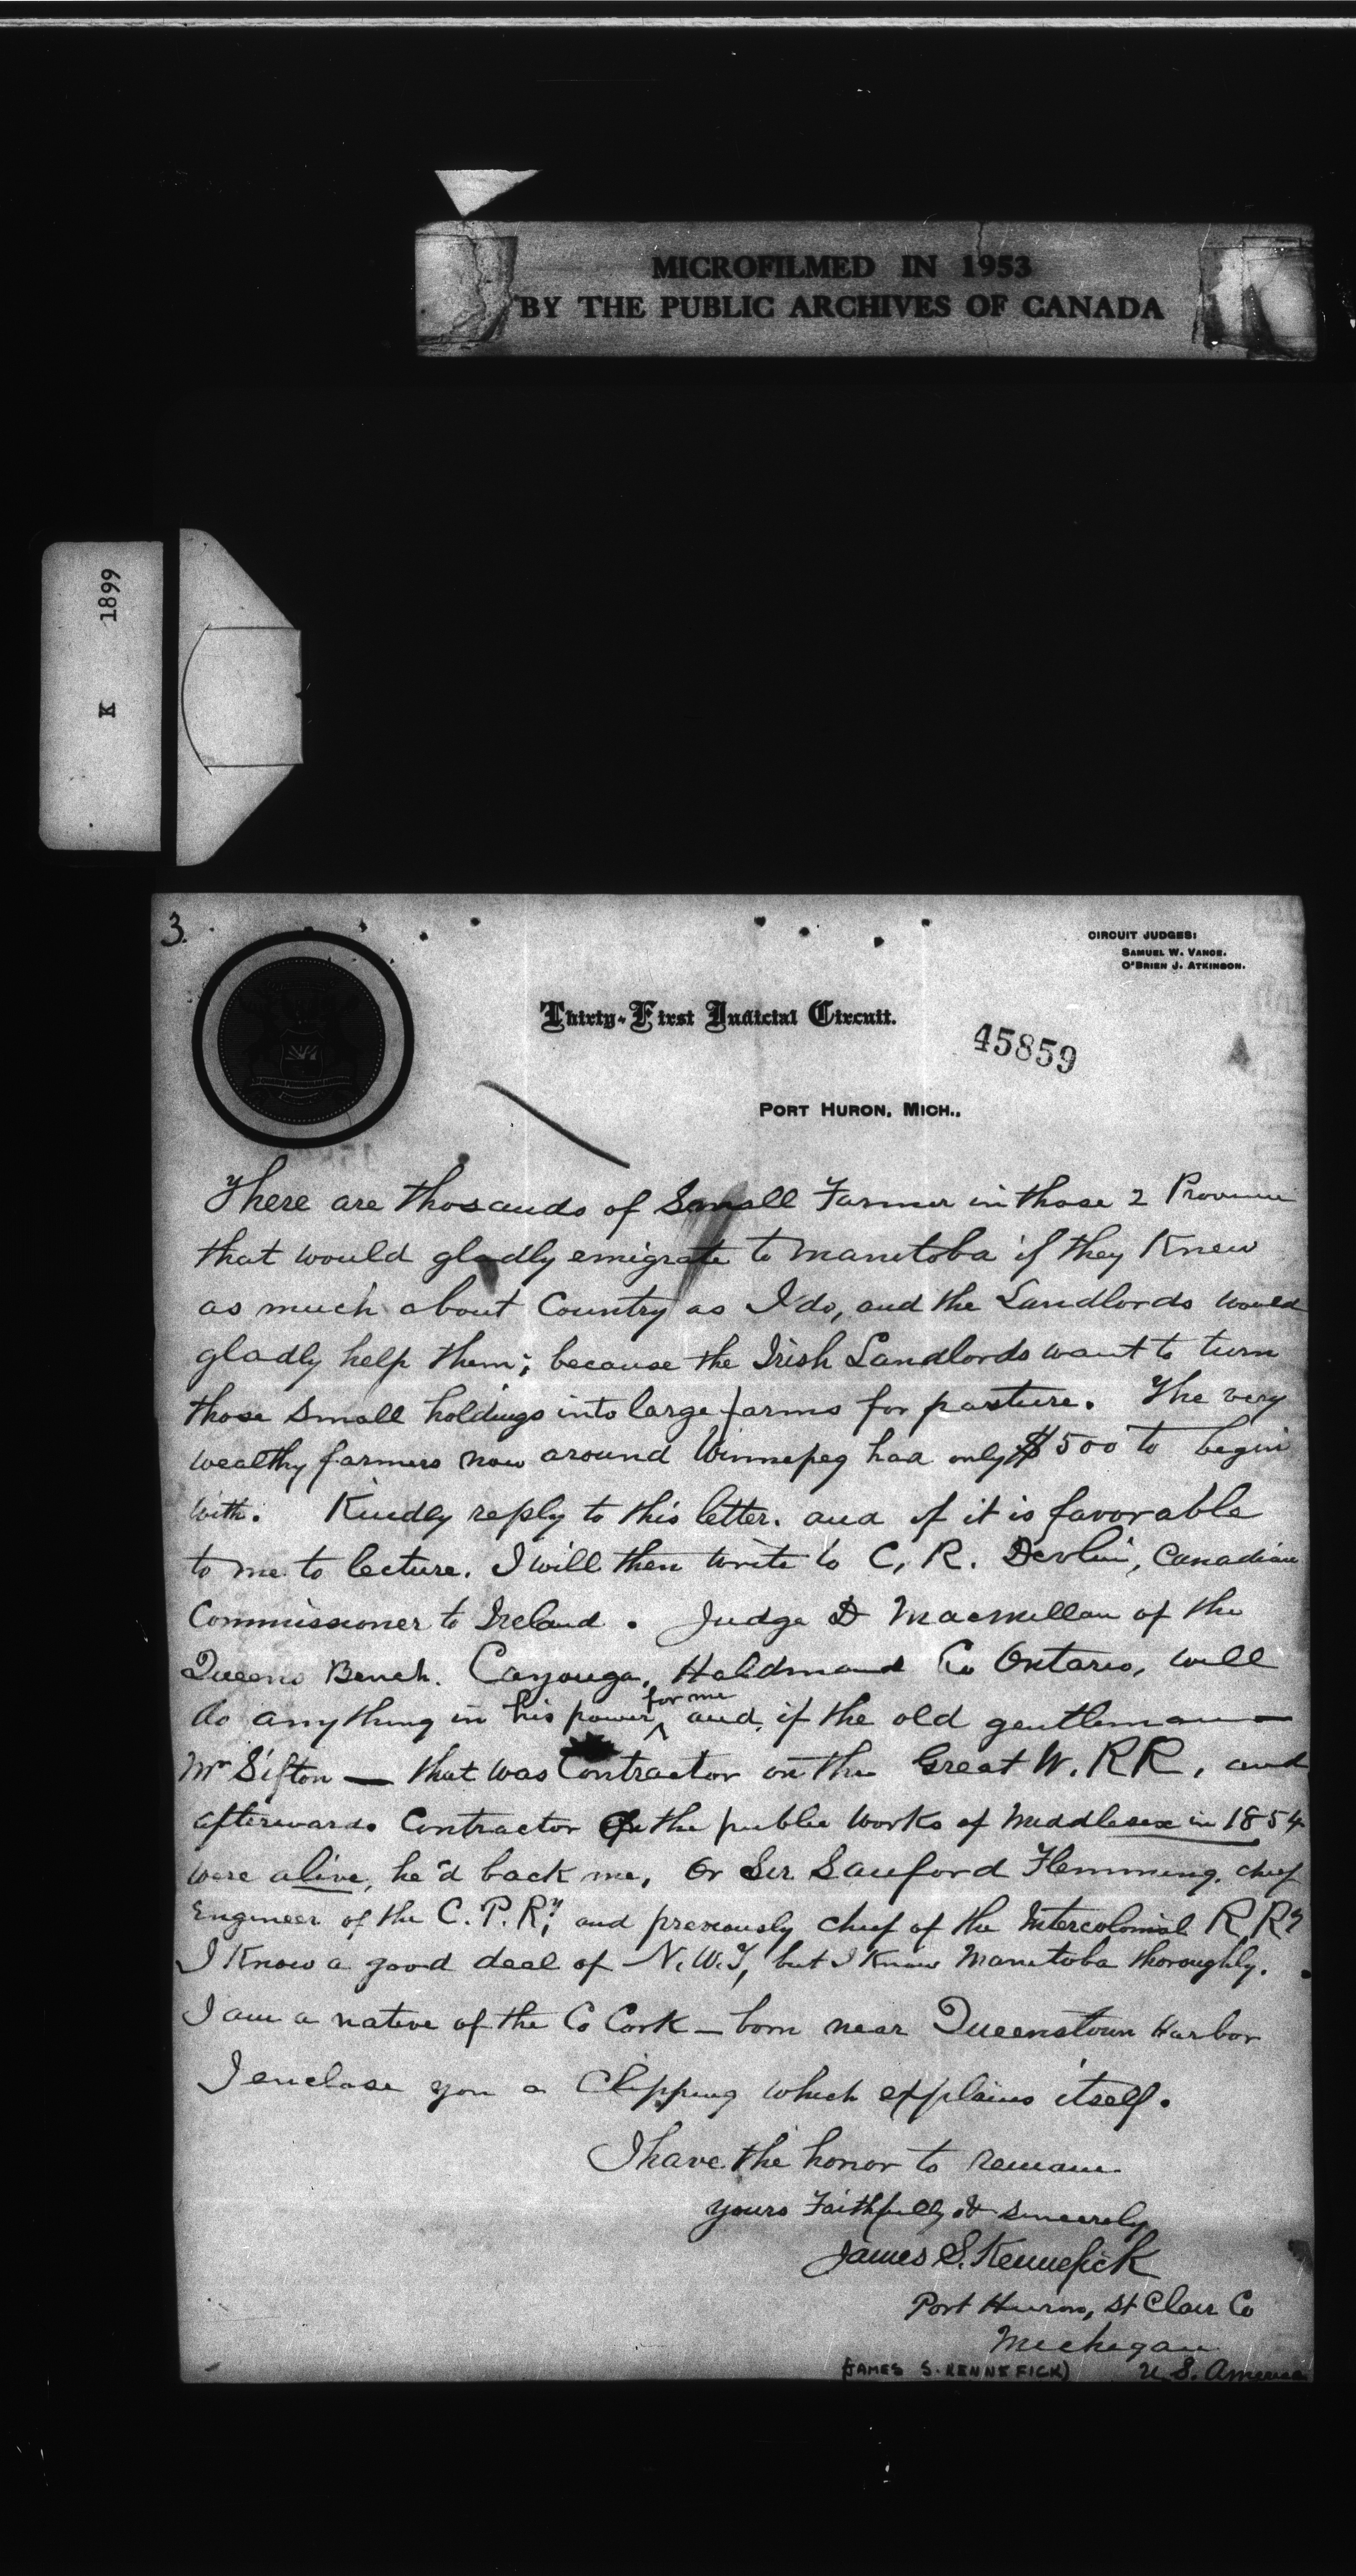 MICROFILMED IN 1953
BY THE PUBLIC ARCHIVES OF CANADA
K 1899
3.
CIRCUIT JUDGES:
SAMUEL W. VANCE.
O'BRIEN J. ATKINSON.
Thirty-First Judicial Circuit.
45859
PORT HURON, MICH.,
There are thosands of Small Farmer in those 2 Province
that would gladly emigrate to Manitoba if they Knew
as much about Country as I do, and the Landlords would
gladly help them; because the Irish Landlords want to turn
those small holdings into large farms for pasture. The very
wealthy farmers now around Winnepeg had only $500 to begin
with. Kindly reply to this letter. and if it is favorable
to me to lecture. I will then write to C. R. Devlin, Canadian
Commissioner to Ireland. Judge D Macmillan of the
Queens Bench. Cayouga, Haldmand Co Ontario, will
do anything in his power for me and, if the old gentleman —
Mr Sifton — that was Contractor on the Great W. RR, and
afterwards Contractor the public works of Middlesex in 1854
were alive, he'd back me, Or Sir Sanford Flemming, chief
Engineer of the C. P. Ry, and previously chief of the Intercolonial R Ry
I Know a good deal of N.W.T, but I Know Manitoba thoroughly.
I am a native of the Co Cork — born near Queenstown Harbor
I enclose you a Clipping which explains itself.
I have the honor to remain
yours Faithfully & sincerely
James S. Kennefick
Port Huron, St Clair Co
Michigan
(JAMES S. KENNEFICK) U.S. America